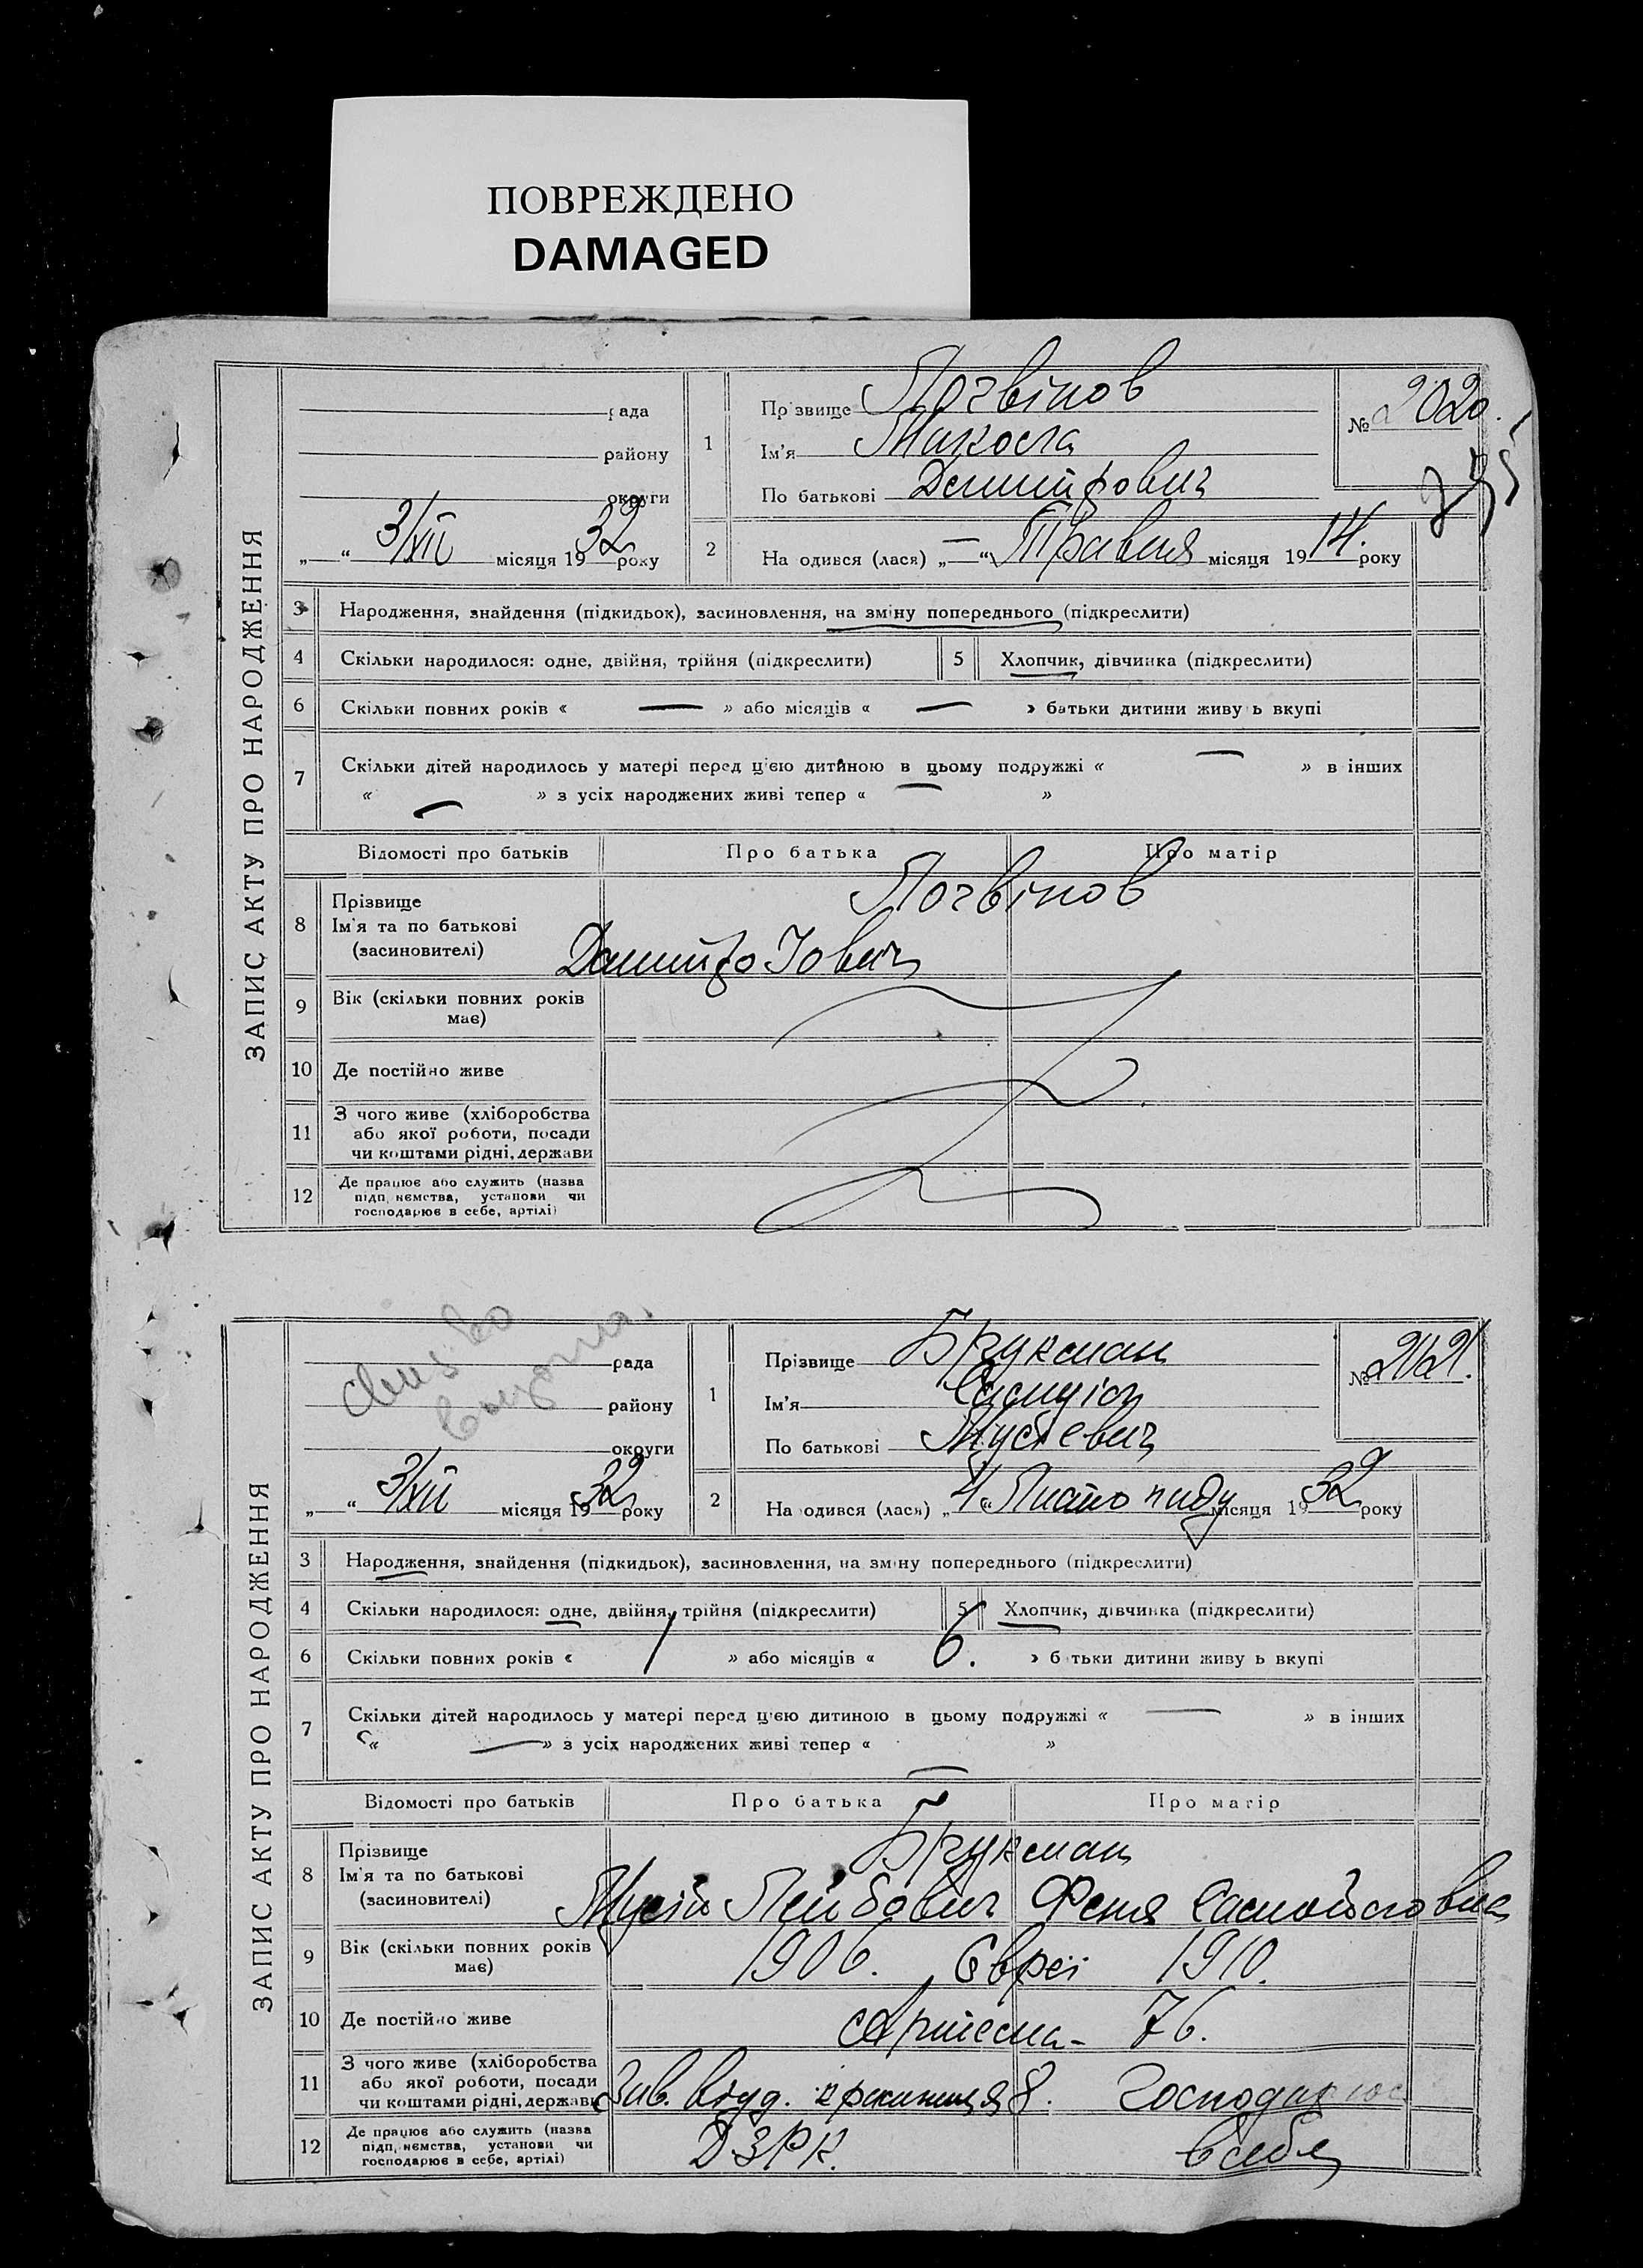 ПОВРЕЖДЕНО
DAMAGED
ЗАПИС АКТУ ПРО НАРОДЖЕННЯ
рада
району
округи
„ “ 3/XII місяця 1932 року
1
Прізвище Логвінов
Ім'я Микола
По батькові Дмитрович
№ 2020.
2
На одився (лася) „—“ Травня місяця 1914. року
3 Народження, знайдення (підкидьок), засиновлення, на зміну попереднього (підкреслити)
4 Скільки народилося: одне, двійня, трійня (підкреслити) 5 Хлопчик, дівчинка (підкреслити)
6 Скільки повних років « — » або місяців « — » батьки дитини живу ь вкупі
7 Скільки дітей народилось у матері перед цією дитиною в цьому подружжі « — » в інших
« — » з усіх народжених живі тепер « — »
Відомості про батьків Про батька Про матір
8 Прізвище Логвінов
Ім'я та по батькові
(засиновителі) Дмитро Іович
9 Вік (скільки повних років
має)
10 Де постійно живе
11 З чого живе (хліборобства
або якої роботи, посади
чи коштами рідні, держави
12 Де працює або служить (назва
підп. ємства, установи чи
господарює в себе, артілі)
ЗАПИС АКТУ ПРО НАРОДЖЕННЯ
рада
району
округи
„ “ 3/XII місяця 1932 року
1
Прізвище Брукман
Ім'я Самуїл
По батькові Мусієвич
№ 2021.
2
На одився (лася) „4“ Листопаду місяця 1932 року
3 Народження, знайдення (підкидьок), засиновлення, на зміну попереднього (підкреслити)
4 Скільки народилося: одне, двійня, трійня (підкреслити) 5 Хлопчик, дівчинка (підкреслити)
6 Скільки повних років « 1 » або місяців « 6. » б тьки дитини живу ь вкупі
7 Скільки дітей народилось у матері перед цією дитиною в цьому подружжі « — » в інших
« — » з усіх народжених живі тепер « — »
Відомості про батьків Про батька Про матір
8 Прізвище Брукман
Ім'я та по батькові
(засиновителі) Мусій Лейбович Феня Самойловна
9 Вік (скільки повних років
має) 1906. Євреї 1910.
10 Де постійно живе Артема - 76.
11 З чого живе (хліборобства
або якої роботи, посади
чи коштами рідні, держави Зав. відд. крамниця 8. Господарює
12 Де працює або служить (назва
підп. ємства, установи чи
господарює в себе, артілі) ДЗРК. в себе